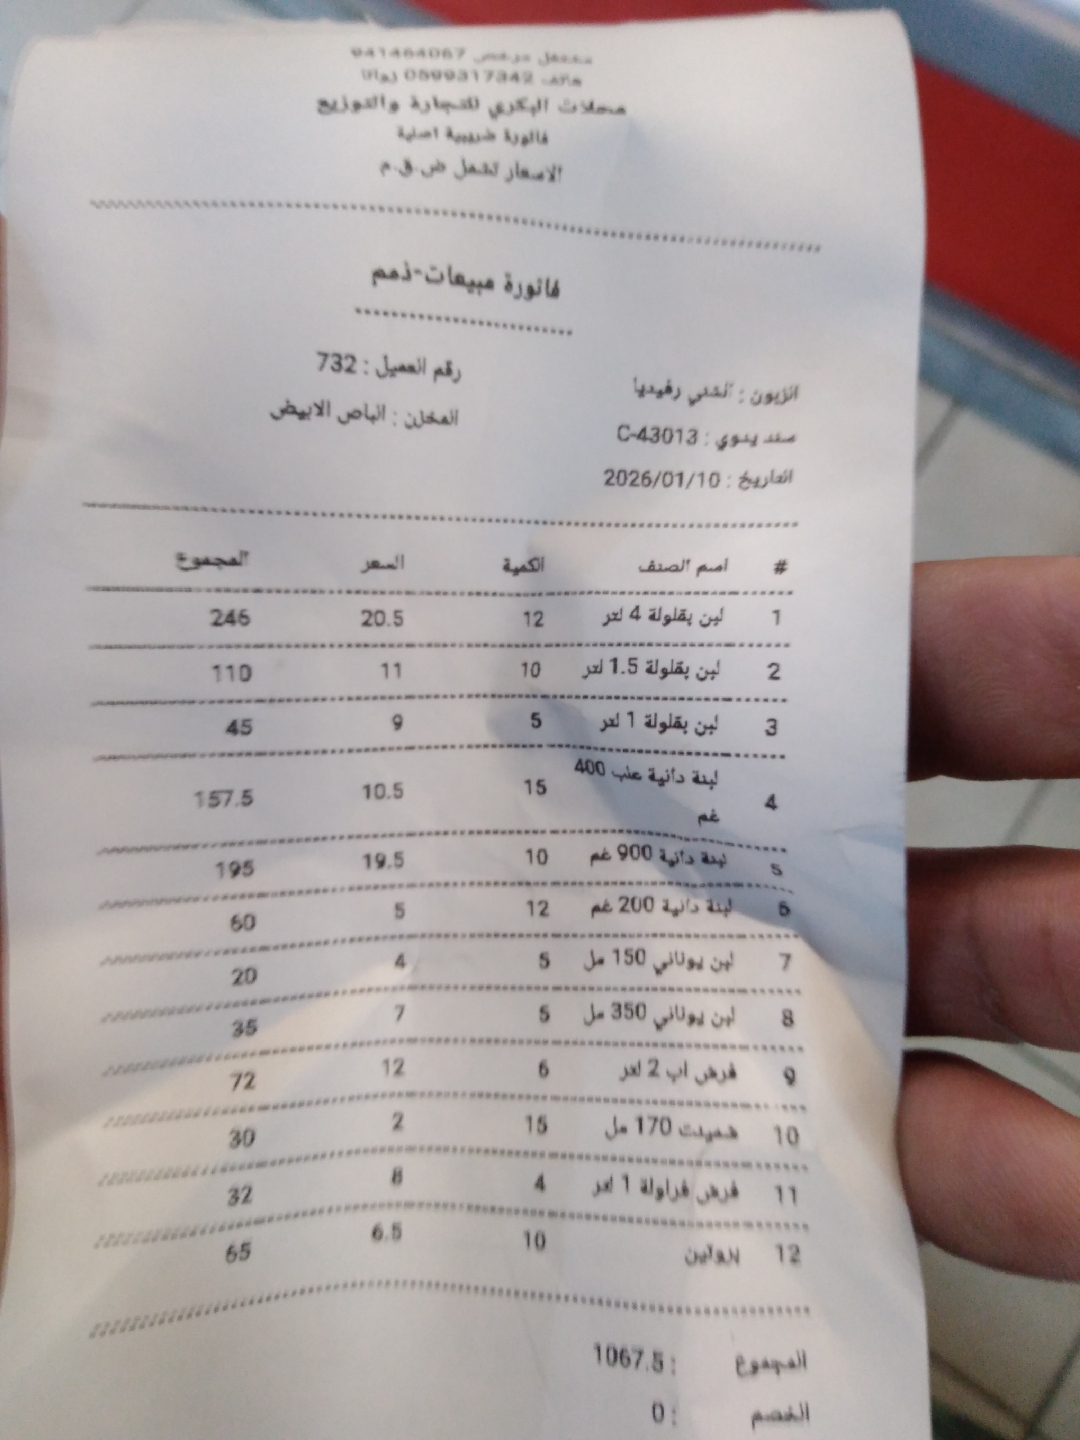 مشتغل مرخص 941464067
هاتف 0599317342 زوانا
محلات البكري للتجارة والتوزيع
فاتورة ضريبية اصلية
الاسعار تشمل ض.ق.م
فاتورة مبيعات-ذمم
الزبون : الشني رفيديا رقم العميل : 732
سند يدوي : C-43013 المخزن : الباص الابيض
التاريخ : 2026/01/10
# اسم الصنف الكمية السعر المجموع
1 لبن بقلولة 4 لتر 12 20.5 246
2 لبن بقلولة 1.5 لتر 10 11 110
3 لبن بقلولة 1 لتر 5 9 45
4 لبنة دانية علب 400 غم 15 10.5 157.5
5 لبنة دانية 900 غم 10 19.5 195
6 لبنة دانية 200 غم 12 5 60
7 لبن يوناني 150 مل 5 4 20
8 لبن يوناني 350 مل 5 7 35
9 فرش اب 2 لتر 6 12 72
10 شمينت 170 مل 15 2 30
11 فرش فراولة 1 لتر 4 8 32
12 بروتين 10 6.5 65
المجموع : 1067.5
الخصم : 0